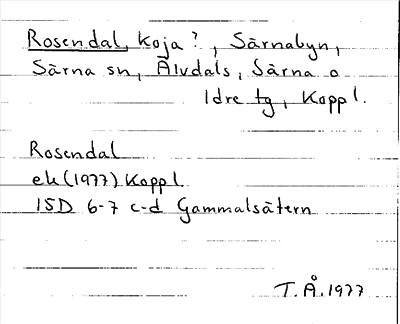 Rosendal, Koja?, Särnabyn,
Särna sn, Älvdals, Särna o
Idre tg, Koppl.
Rosendal
ek (1977) Koppl.
15D 6-7 c-d Gammalsätern
T.Å. 1977